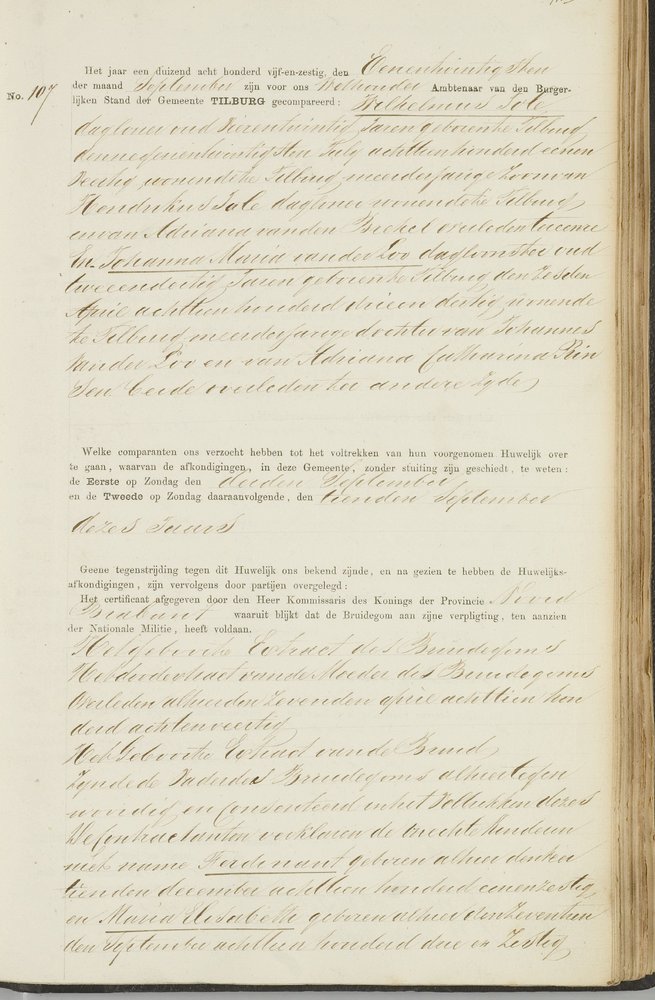 Het jaar een duizend acht honderd vijf-en-zestig, den Eenentwintigsten
der maand September zijn voor ons Wethouder Ambtenaar van den Burger-
No. 107 lijken Stand der Gemeente TILBURG gecompareerd: Wilhelmus Sole
daglooner oud Vierentwintig Jaren geboren te Tilburg
den twintigsten July achttien honderd eenen
veertig wonende te Tilburg meerderjarige Zoon van
Hendrikus Sole daglooner wonende te Tilburg
en van Adriana van den Brekel overleden ter eenre
En Johanna Maria van der Loo dagloonster oud
tweeendertig Jaren geboren te Tilburg den Zesden
April achttien honderd drieen dertig wonende
te Tilburg meerderjarige dochter van Johannes
van der Loo en van Adriana Catharina Rin
sen beide overleden ter andere Zyde
Welke comparanten ons verzocht hebben tot het voltrekken van hun voorgenomen Huwelijk over
te gaan, waarvan de afkondigingen, in deze Gemeente, zonder stuiting zijn geschiedt, te weten:
de Eerste op Zondag den derden September
en de Tweede op Zondag daaraanvolgende, den tienden September
dezes Jaars
Geene tegenstrijding tegen dit Huwelijk ons bekend zijnde, en na gezien te hebben de Huwelijks-
afkondigingen, zijn vervolgens door partijen overgelegd:
Het certificaat afgegeven door den Heer Kommissaris des Konings der Provincie Noord
Brabant waaruit blijkt dat de Bruidegom aan zijne verpligting, ten aanzien
der Nationale Militie, heeft voldaan.
Het geboorte Extract des Bruidegoms
Het doodextract van de Moeder des Bruidegoms
Overleden alhier den Zevenden april achttien hon
derd achtenveertig
Het Geboorte Extract van de Bruid
Zynde de Vader des Bruidegoms alhier tegen
woordig en consenteerd in het Voltrekken dezes
De contractanten verklaren de onechte Kinderen
met name Ferdinant geboren alhier den
tienden december achttien honderd eenenzestig
en Maria Elisabeth geboren alhier den Zeventien
den September achttien honderd drie en Zestig